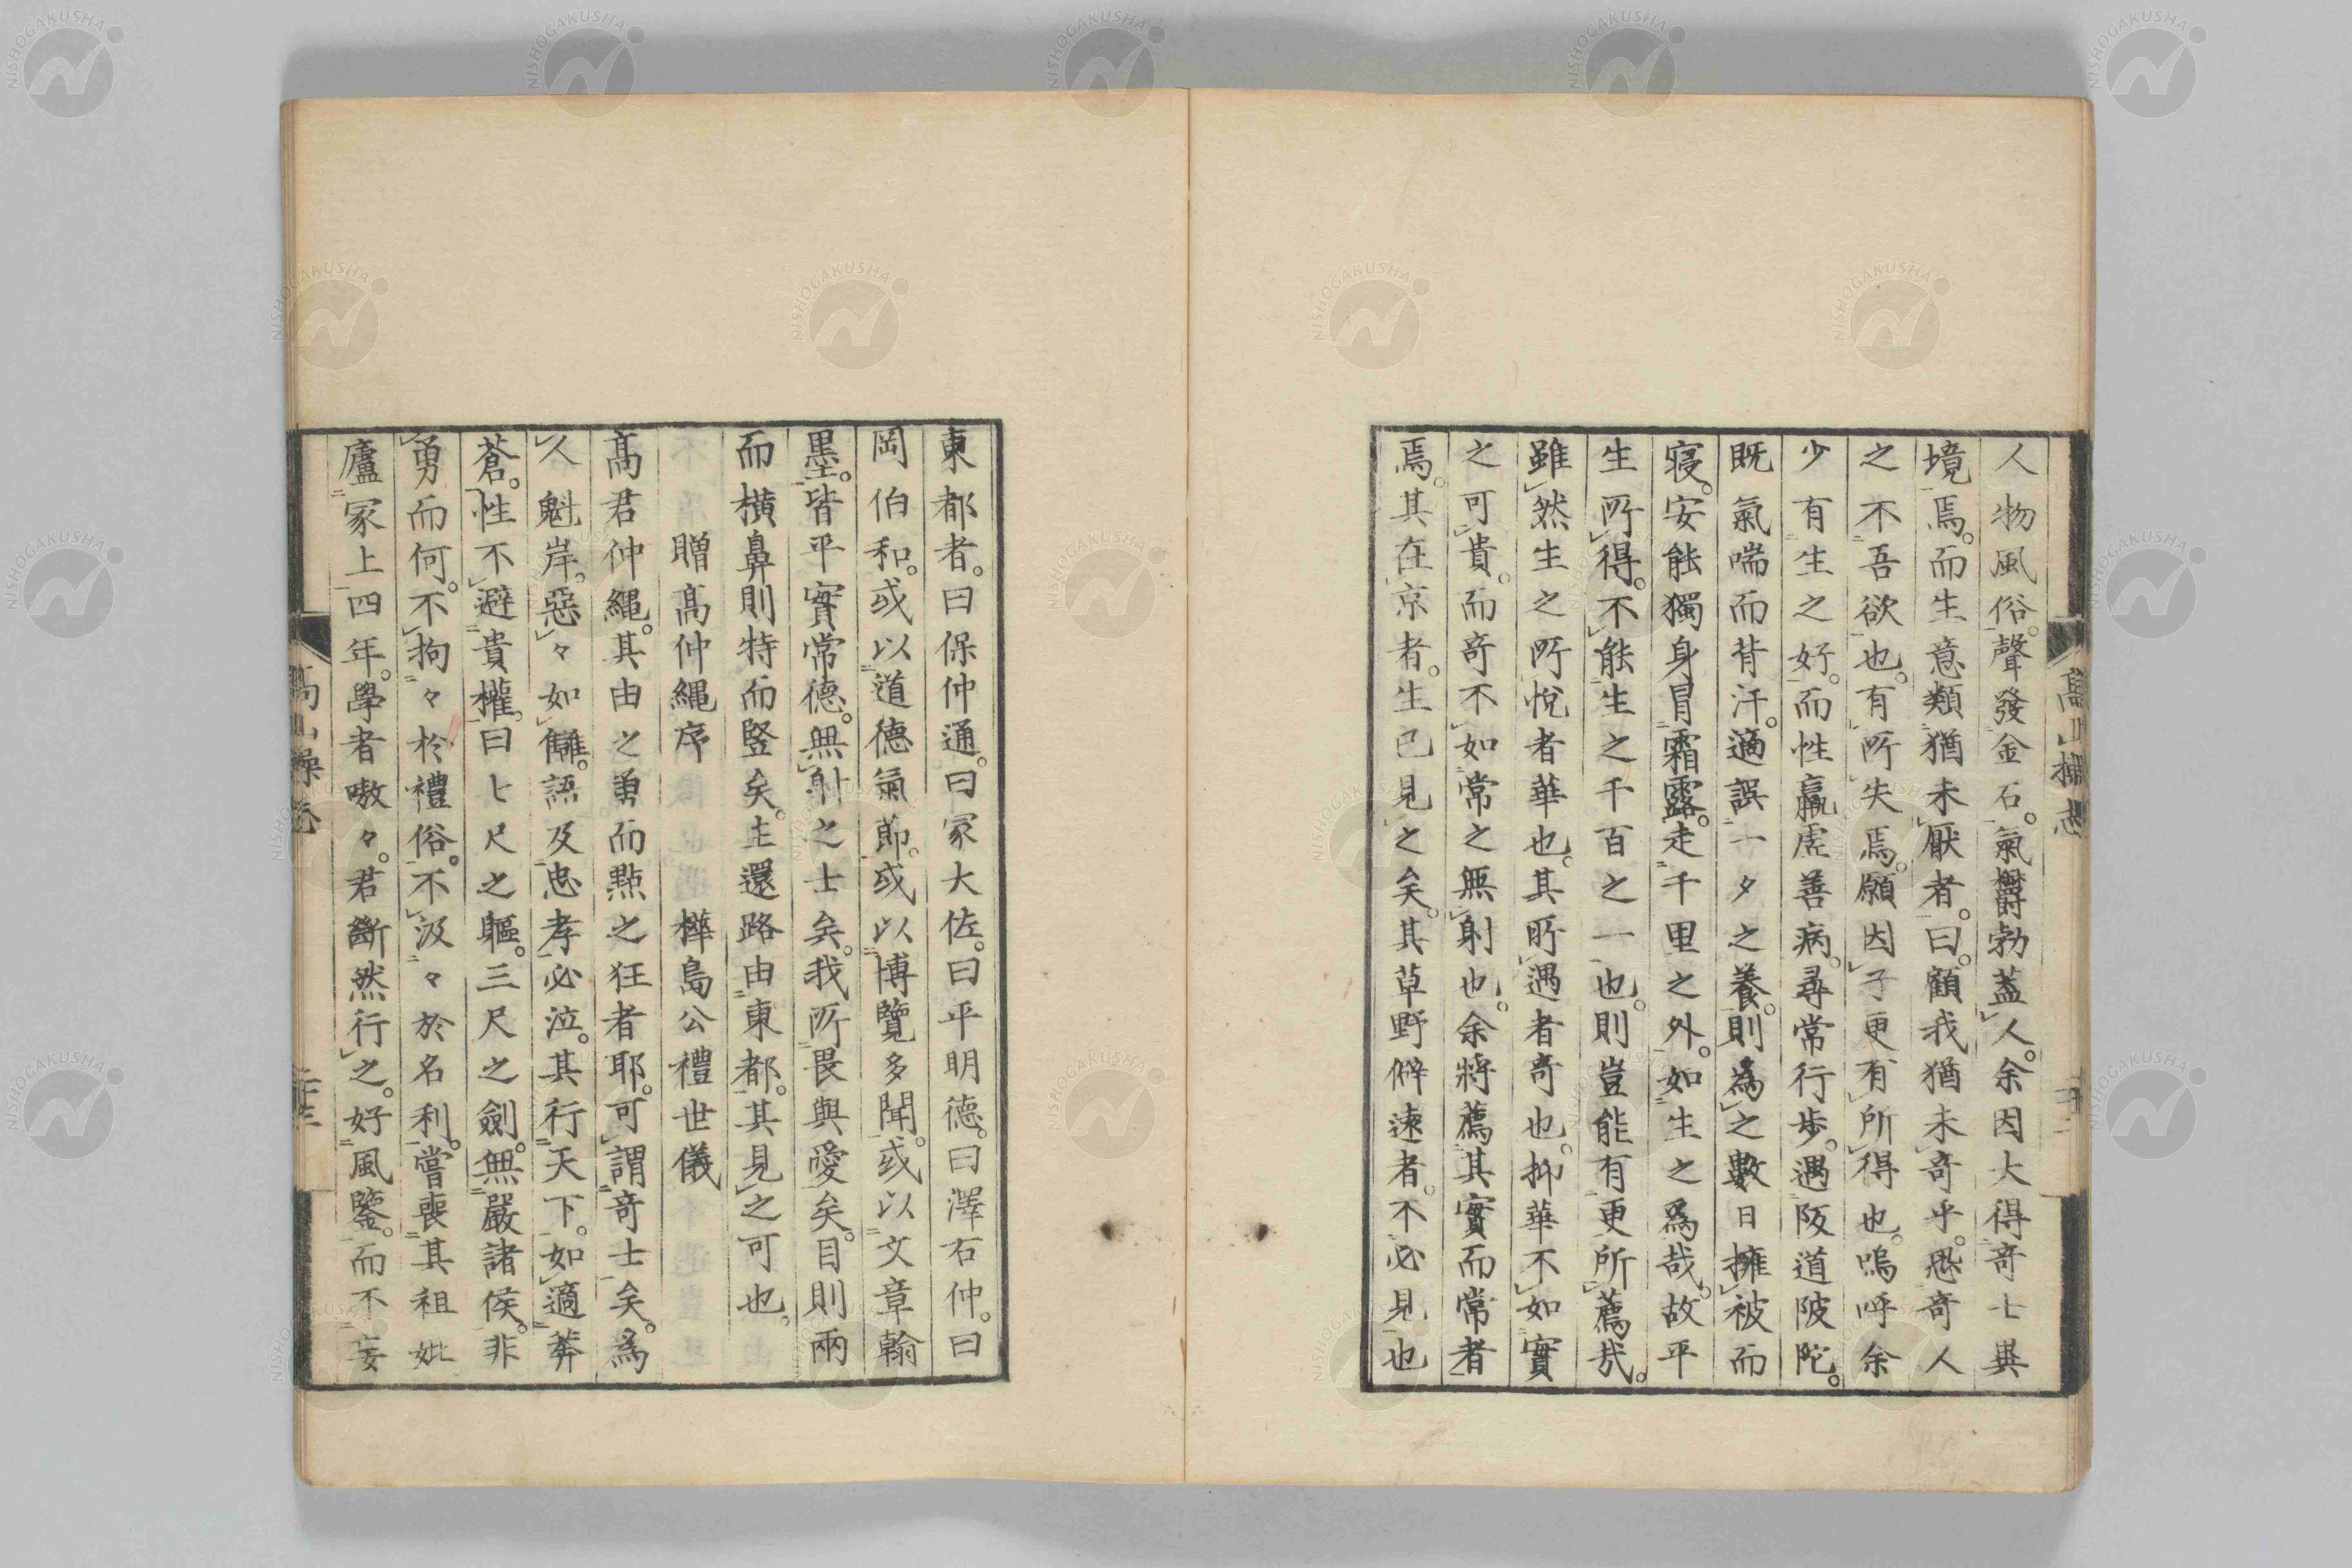 人物風俗。聲發金石。氣欝勃蓋人。余因大得奇士與
境焉。而生意類猶未厭者。曰。顧我猶未奇乎。恐奇人
之不吾欲也。有所失焉。願因子更有所得也。嗚呼余
少有生之好。而性羸虗善病。尋常行歩。遇阪道陂陀。
既氣喘而背汗。適誤一夕之養。則為之數日擁被而
寝。安能獨身冒霜露。走千里之外。如生之爲哉。故平
生所得。不能生之千百之一也。則豈能有更所薦哉。
雖然生之所悅者華也。其所遇者奇也。抑華不如實
之可貴。而奇不如常之無射也。余將薦其實而常者
焉。其在京者。生已見之矣。其草野僻遠者。不必見也
東都者。曰保仲通。曰冢大佐。曰平明德。曰澤石仲。曰
岡伯和。或以道德氣節。或以博覽多聞。或以文章翰
墨。皆平實常德。無射之士矣。我所畏與愛矣。目則兩
而橫鼻則特而竪矣。主還路由東都。其見之可也。
贈髙仲縄序 樺島公禮世儀
髙君仲縄。其由之勇而點之狂者耶。可謂奇士矣。爲
人魁岸。惡々如讎。語及忠孝必泣。其行天下。如適莽
蒼。性不避貴權。曰七尺之軀。三尺之劍。無嚴諸侯。非
勇而何。不拘々於禮俗。不汲々於名利。嘗喪其祖妣
廬冢上四年。學者嗷々。君斷然行之。好風鑒。而不妄